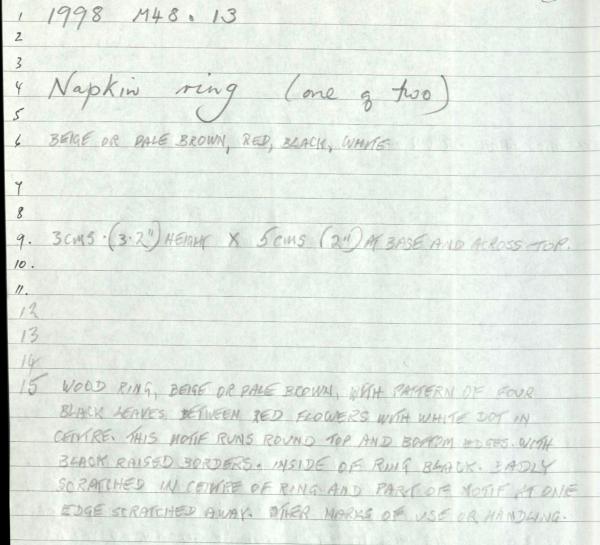 1 1998 M48.13
2
3
4 Napkin ring (one of two)
5
6 BEIGE OR PALE BROWN, RED, BLACK, WHITE
7
8
9. 3 CMS. (3.2") HEIGHT X 5 CMS (2") AT BASE AND ACROSS TOP.
10.
11.
12
13
14
15 WOOD RING, BEIGE OR PALE BROWN, WITH PATTERN OF FOUR
BLACK LEAVES BETWEEN RED FLOWERS WITH WHITE DOT IN
CENTRE. THIS MOTIF RUNS ROUND TOP AND BOTTOM EDGES. WITH
BLACK RAISED BORDERS. INSIDE OF RING BLACK. BADLY
SCRATCHED IN CENTRE OF RING AND PART OF MOTIF AT ONE
EDGE SCRATCHED AWAY. OTHER MARKS OF USE OR HANDLING.